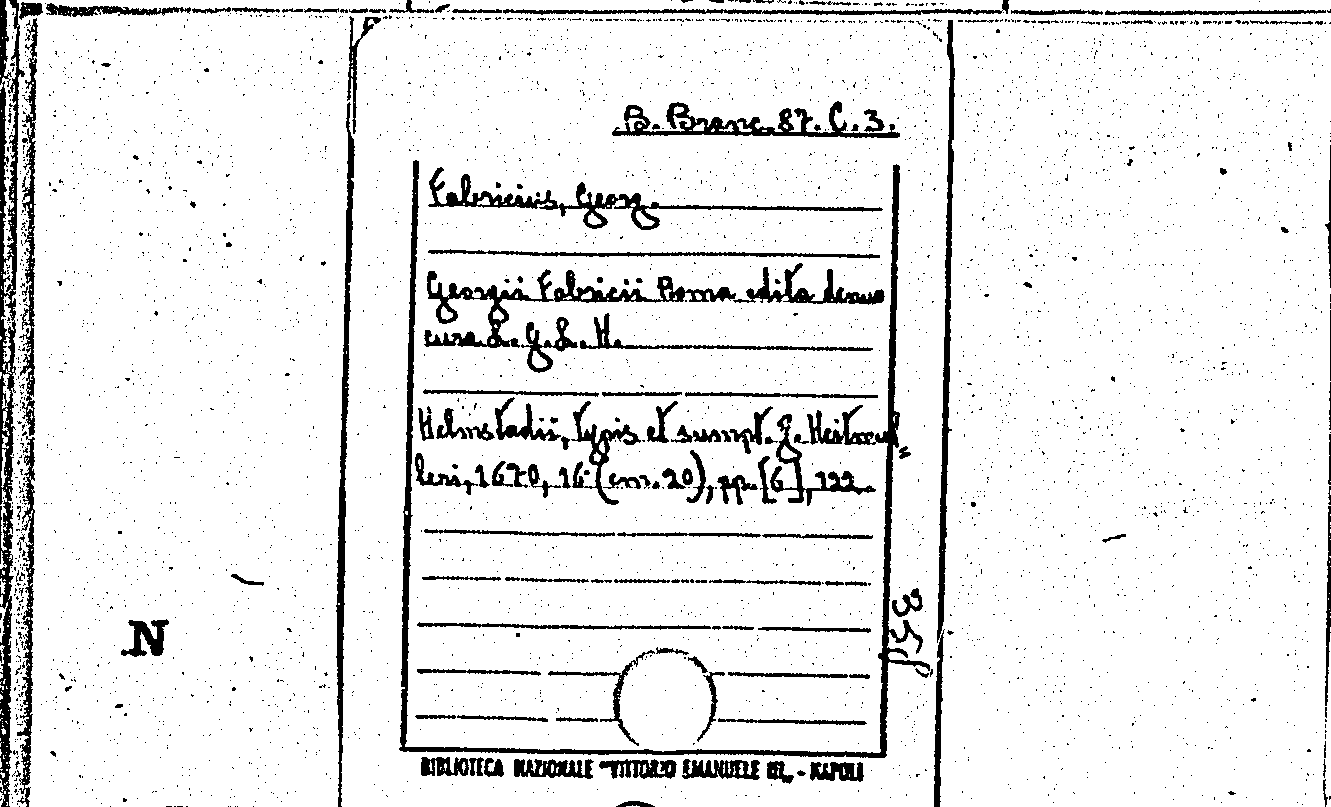 B. Branc. 87. C. 3.
Fabricius, Georg.
Georgii Fabricii Roma edita denuo
cura L. G. L. H.
Helmstadii, typis et sumpt. J. Heitmul„
leri, 1670, 16° (cm. 20), pp. [6], 122.
358
N
BIBLIOTECA NAZIONALE "VITTORIO EMANUELE III„ - NAPOLI